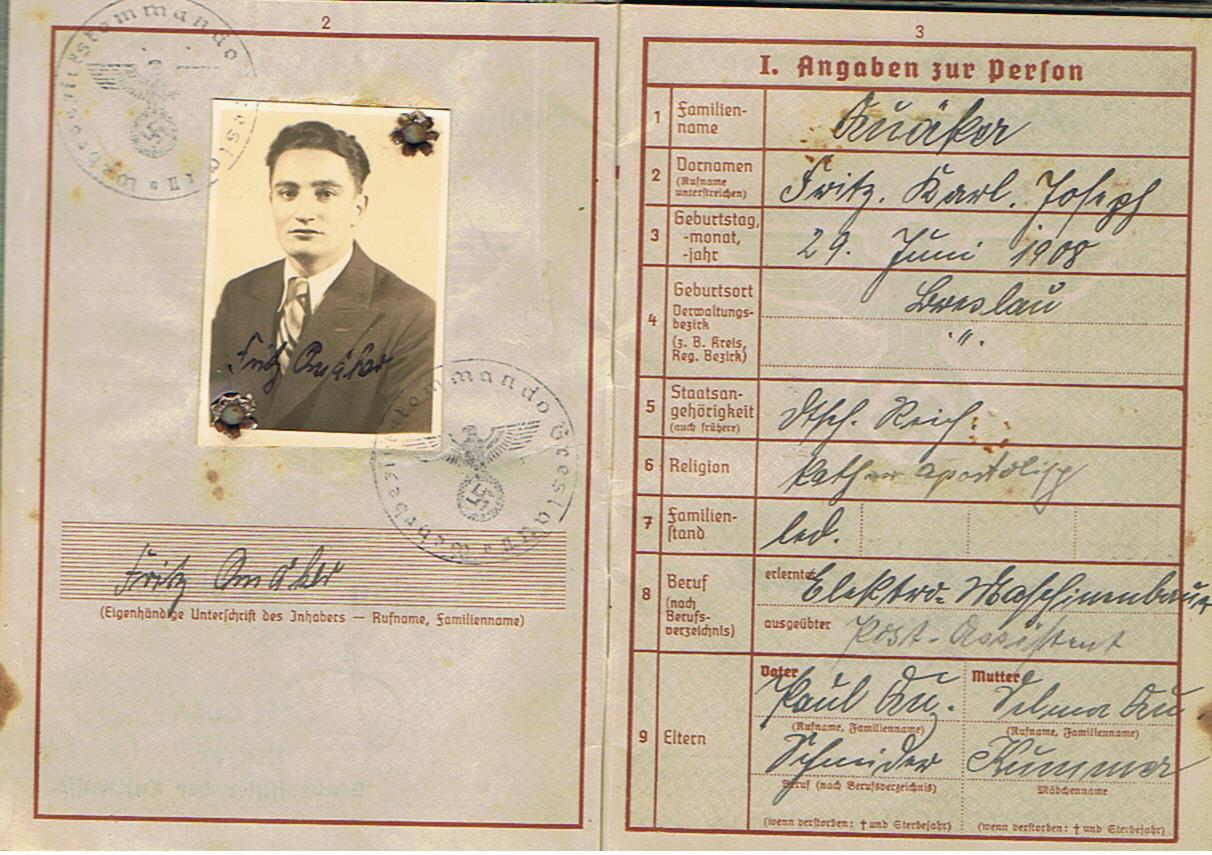 2
Wehrbezirkskommando
Fritz Quäker
Wehrbezirkskommando Breslau
Fritz Quäker
(Eigenhändige Unterschrift des Inhabers — Rufname, Familienname)
3
I. Angaben zur Person
1 Familien-
name
Quäker
2 Vornamen
(Rufname
unterstreichen)
Fritz. Karl. Joseph
3 Geburtstag,
-monat,
-jahr
29. Juni 1908
4 Geburtsort
Verwaltungs-
bezirk
(z. B. Kreis,
Reg. Bezirk)
Breslau
"
5 Staatsan-
gehörigkeit
(auch frühere)
Dtsch. Reich.
6 Religion
apostolisch
7 Familien-
stand
led.
8 Beruf
(nach
Berufs-
verzeichnis)
erlernter Elektro-Maschinenbauer
ausgeübter Post-Assistent
9 Eltern
Vater Mutter
Paul Qu. Selma Qu
(Rufname, Familienname) (Rufname, Familienname)
Schneider Kummer
Beruf (nach Berufsverzeichnis) Mädchenname
(wenn verstorben: † und Sterbejahr) (wenn verstorben: † und Sterbejahr)